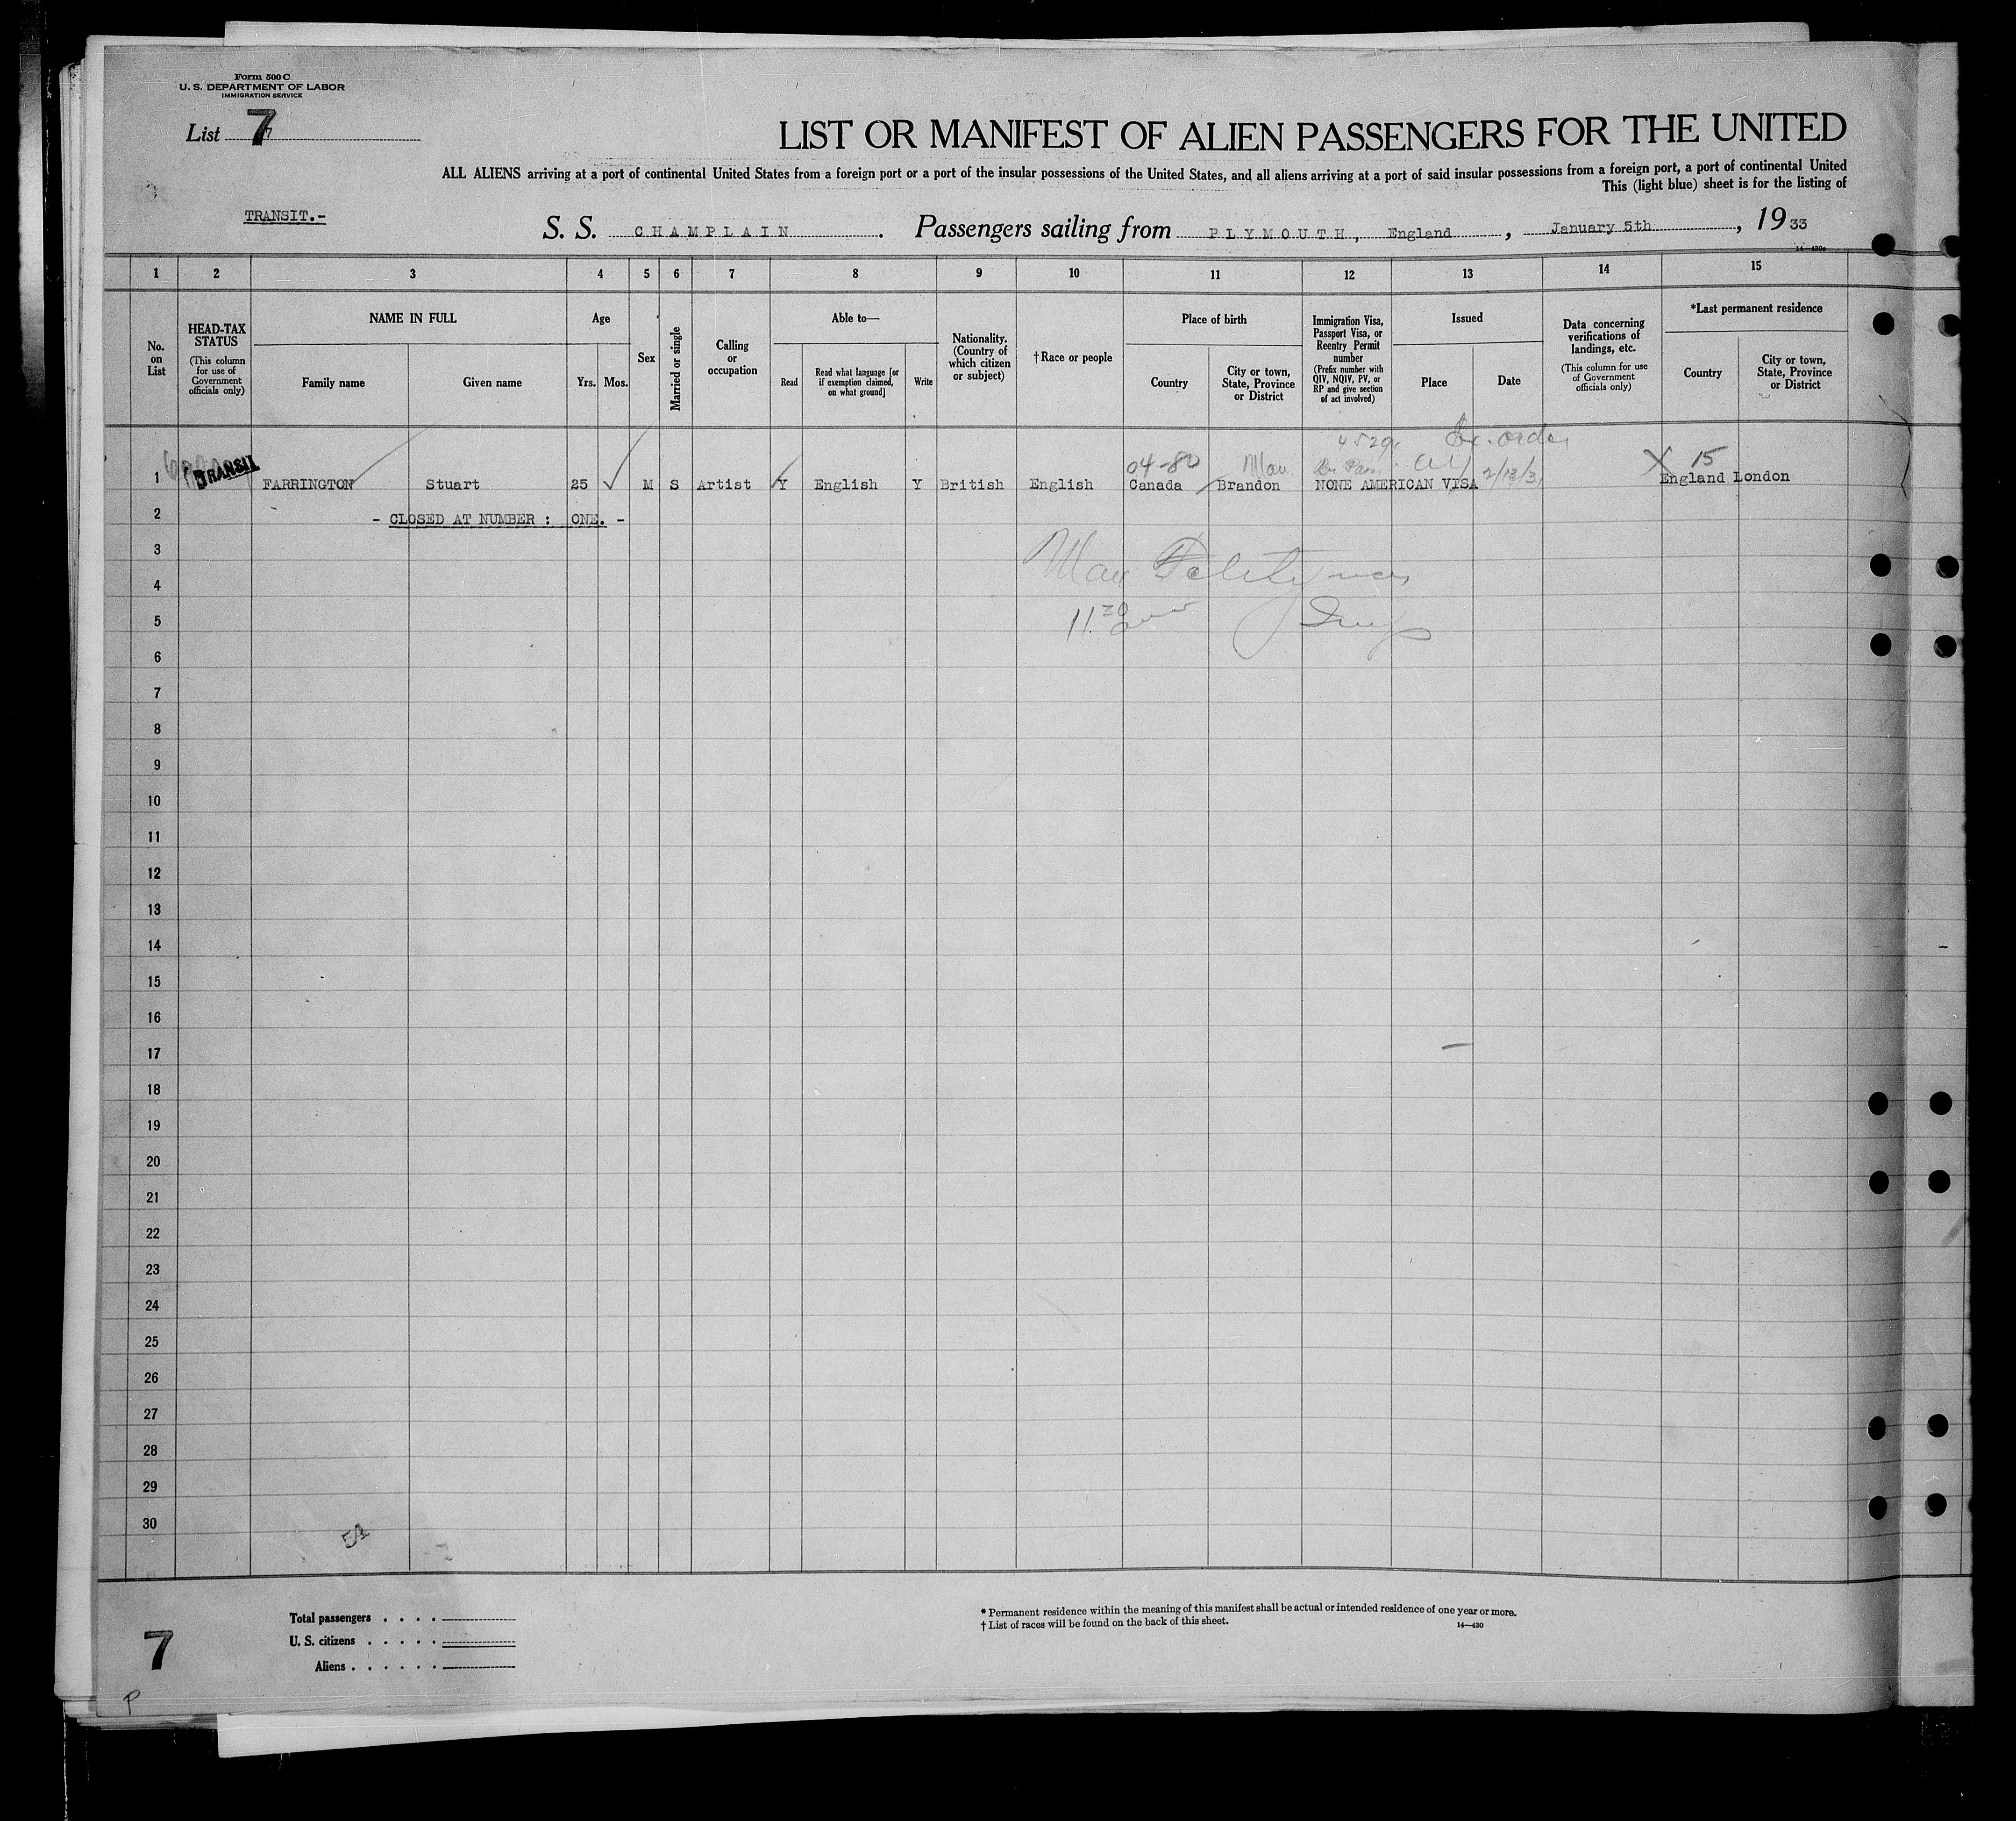 Form 500 C
U. S. DEPARTMENT OF LABOR
IMMIGRATION SERVICE
List 7
LIST OR MANIFEST OF ALIEN PASSENGERS FOR THE UNITED
ALL ALIENS arriving at a port of continental United States from a foreign port or a port of the insular possessions of the United States, and all aliens arriving at a port of said insular possessions from a foreign port, a port of continental United
This (light blue) sheet is for the listing of
TRANSIT.-
S. S. CHAMPLAIN. Passengers sailing from PLYMOUTH, England, January 5th, 1933
14—430
1 2 3 4 5 6 7 8 9 10 11 12 13 14 15
No. on List
HEAD-TAX STATUS (This column for use of Government officials only)
NAME IN FULL
Family name
Given name
Age
Yrs. Mos.
Sex
Married or single
Calling or occupation
Able to—
Read
Read what language [or if exemption claimed, on what ground]
Write
Nationality. (Country of which citizen or subject)
†Race or people
Place of birth
Country
City or town, State, Province or District
Immigration Visa, Passport Visa, or Reentry Permit number (Prefix number with QIV, NQIV, PV, or RP and give section of act involved)
Issued
Place
Date
Data concerning verifications of landings, etc. (This column for use of Government officials only)
*Last permanent residence
Country
City or town, State, Province or District
04-80 15
1 TRANSIT FARRINGTON Stuart 25 M S Artist Y English Y British English Canada Brandon NONE AMERICAN VISA England London
2 - CLOSED AT NUMBER : ONE. -
3
4
5 11 30
6
7
8
9
10
11
12
13
14
15
16
17
18
19
20
21
22
23
24
25
26
27
28
29
30
Total passengers . . . .
U. S. citizens . . . . .
Aliens . . . . . .
* Permanent residence within the meaning of this manifest shall be actual or intended residence of one year or more.
† List of races will be found on the back of this sheet.
14—430
7
P